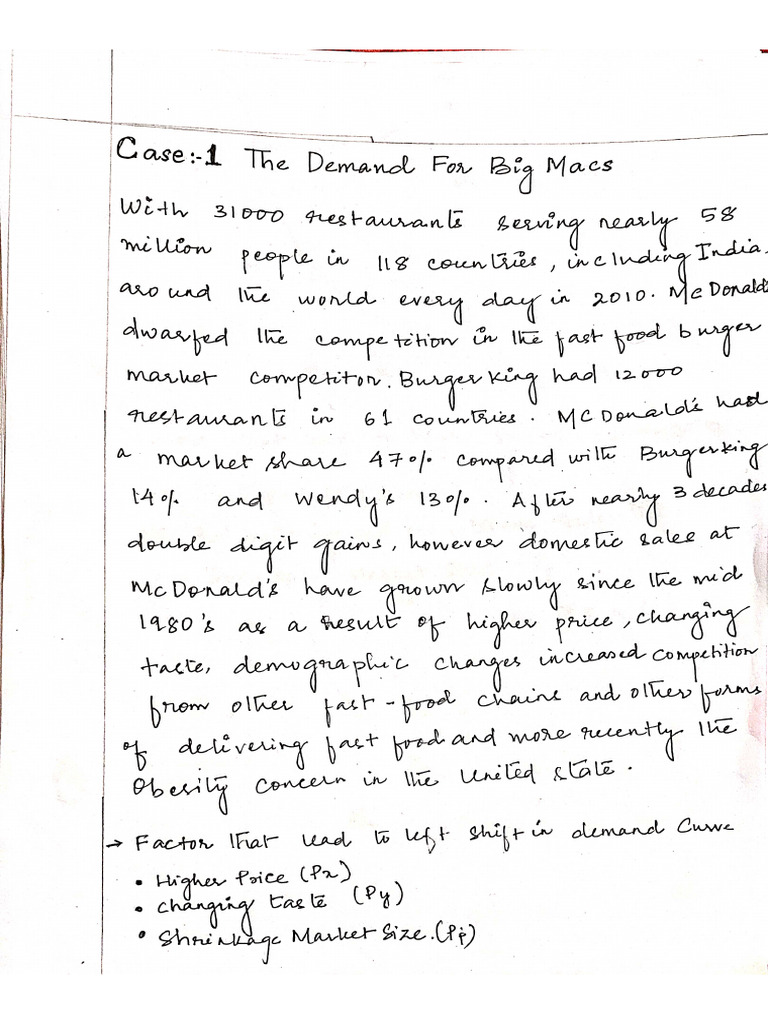 Case:-1 The Demand For Big Macs
With 31000 restaurants serving nearly 58
million people in 118 countries, including India.
around the world every day in 2010. McDonald's
dwarfed the competition in the fast food burger
market competitor. Burger king had 12000
restaurants in 61 countries. MCDonald's had
a market share 47% compared with Burgerking
14% and Wendy's 13%. After nearly 3 decades
double digit gains, however domestic sales at
McDonald's have grown slowly since the mid
1980's as a result of higher price, changing
taste, demographic changes increased competition
from other fast-food chains and other forms
of delivering fast food and more recently the
Obesity concern in the United state.
→ Factor that lead to left shift in demand Curve
• Higher Price (Px)
• Changing taste (Py)
• Shrinkage Market Size. (Pi)